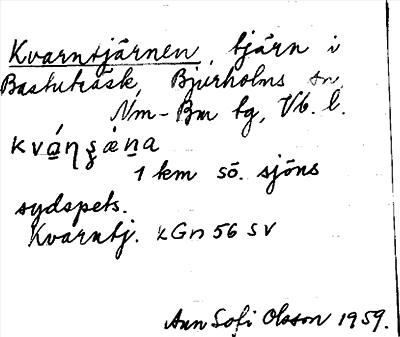 Kvarntjärnen, tjärn i
Bastuträsk, Bjurholms sn,
Nm-Bm tg, Vb. l.
1 km sö. sjöns
sydspets.
Kvarntj. xGn 56 SV
Ann Sofi Olsson 1959.